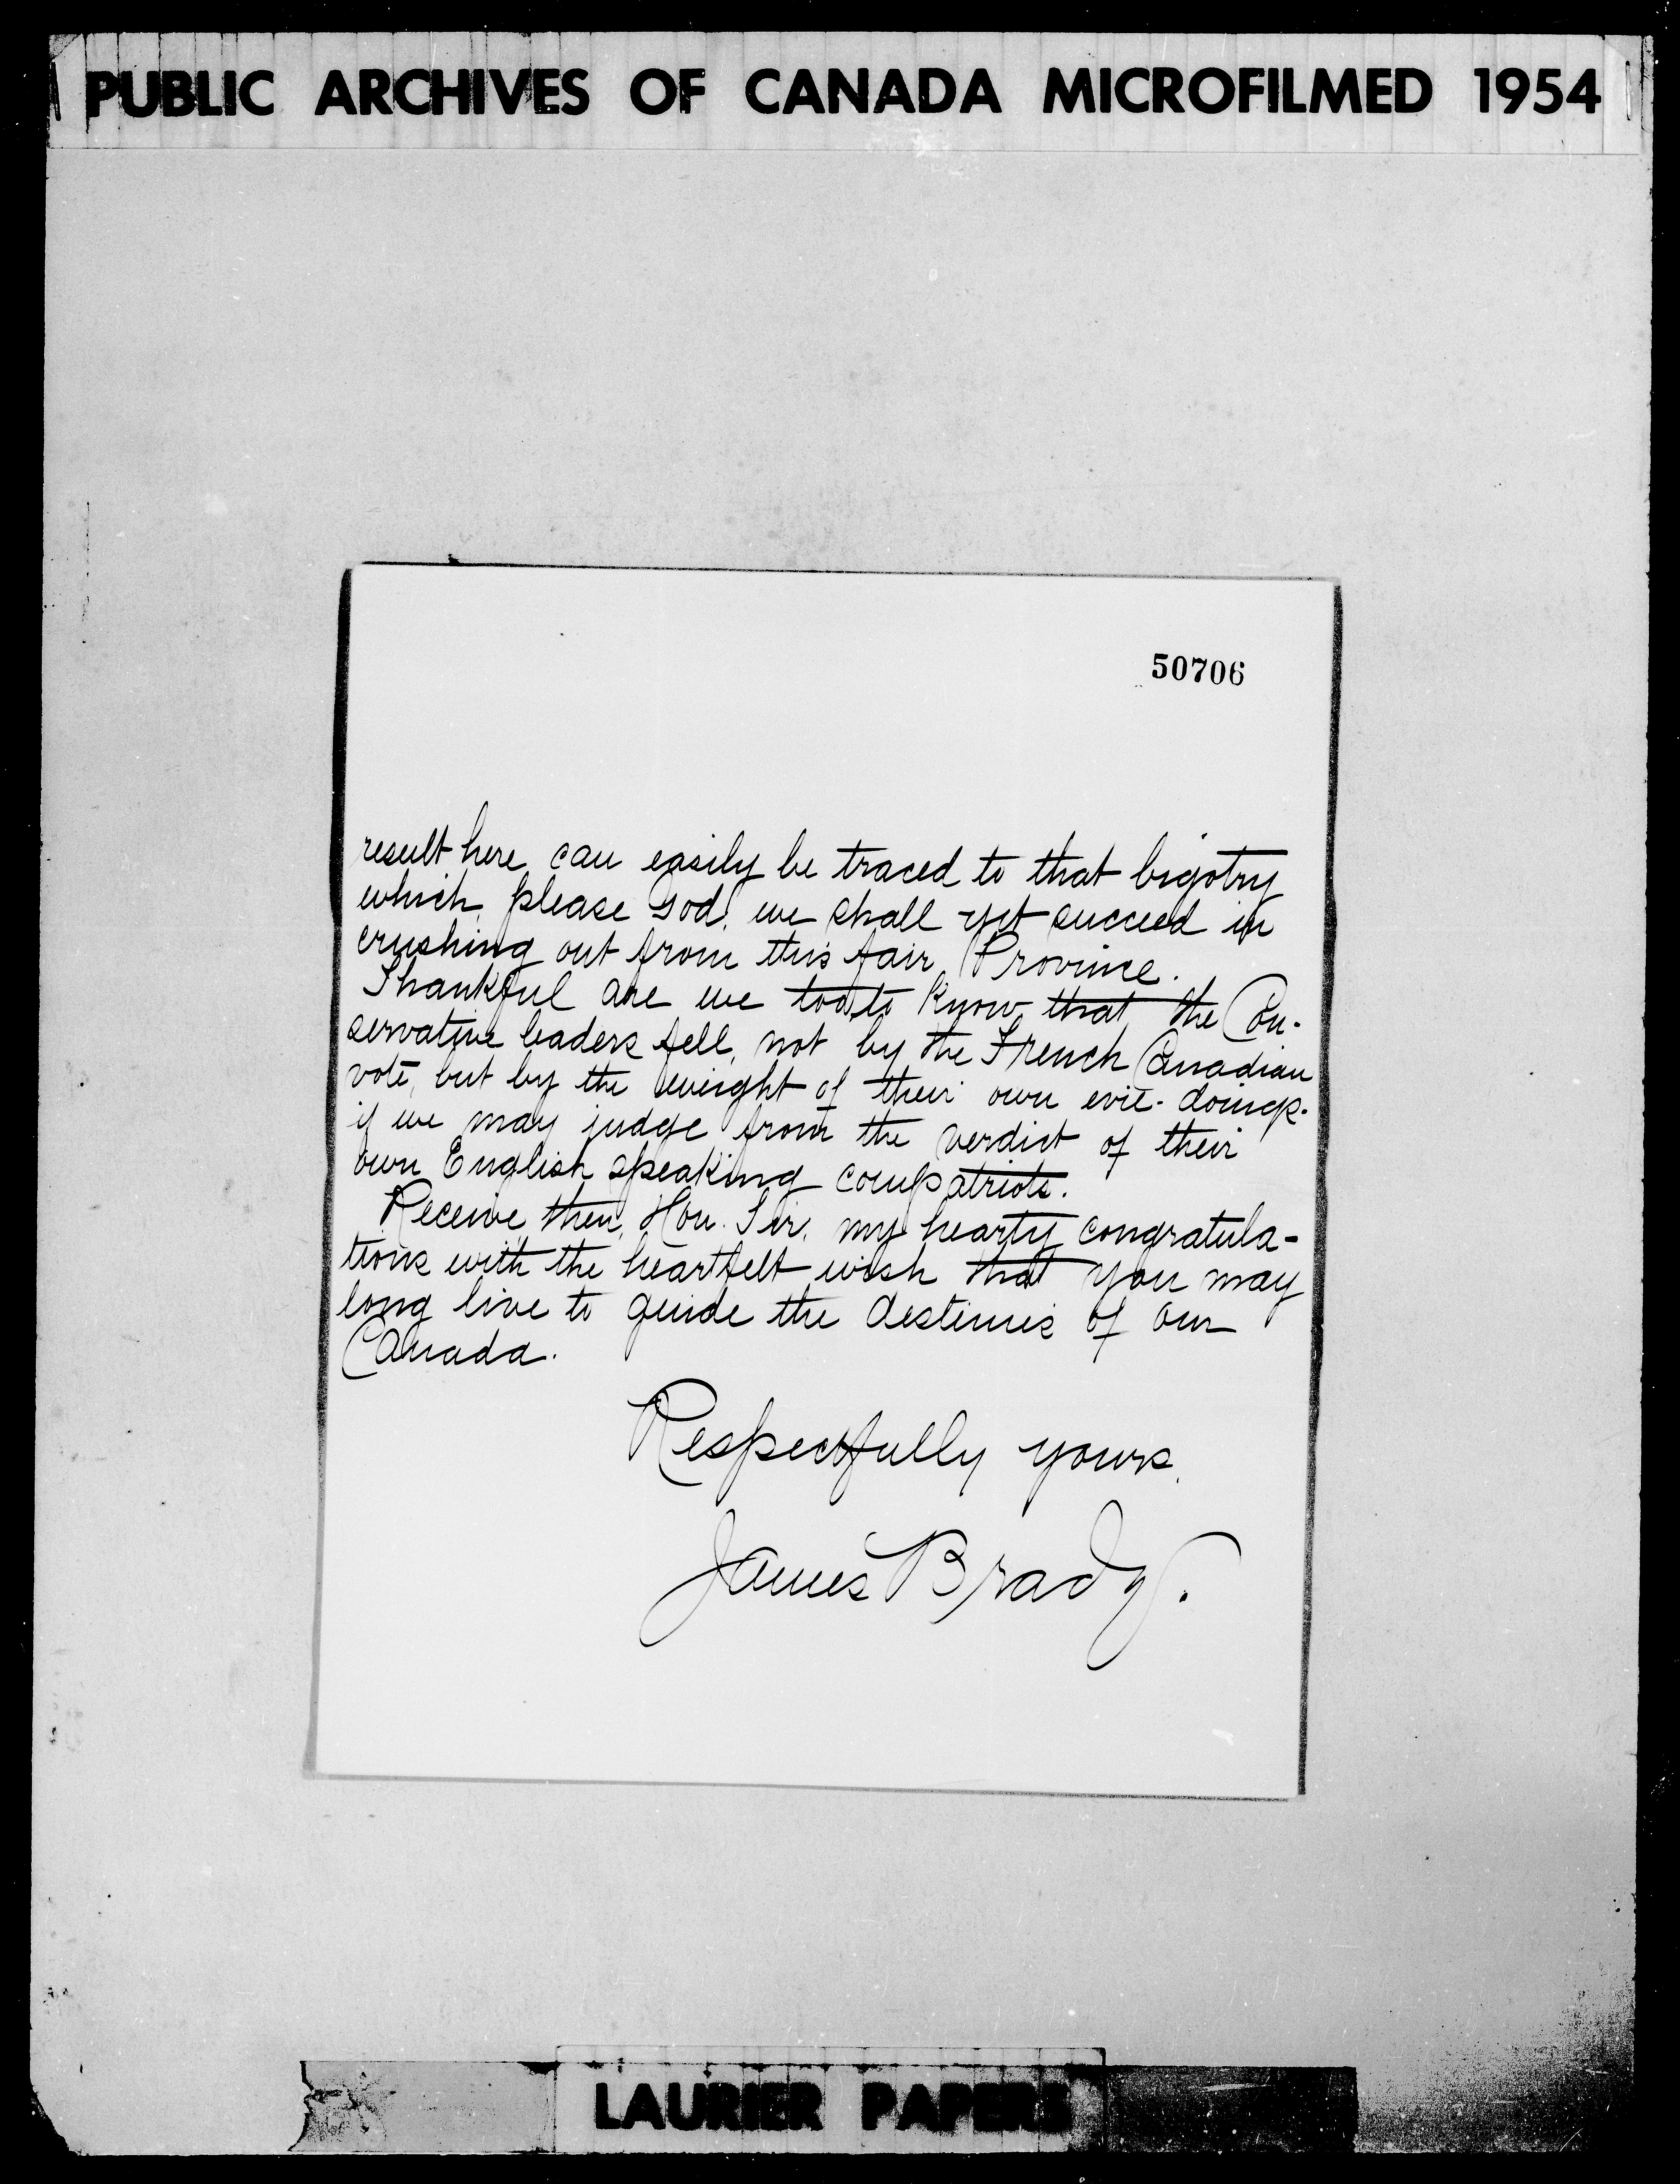 PUBLIC ARCHIVES OF CANADA MICROFILMED 1954
50706
result here can easily be traced to that bigotry
which, please God, we shall yet succeed in
crushing out from this fair Province.
Thankful are we too, to know that the Con-
servative leaders fell, not by the French Canadian
vote, but by the weight of their own evil-doings.
if we may judge from the verdict of their
own English speaking compatriots.
Receive, then, Hon. Sir, my hearty congratula-
tions with the heartfelt wish that you may
long live to guide the destinies of our
Canada.
Respectfully yours,
James Brady.
LAURIER PAPERS